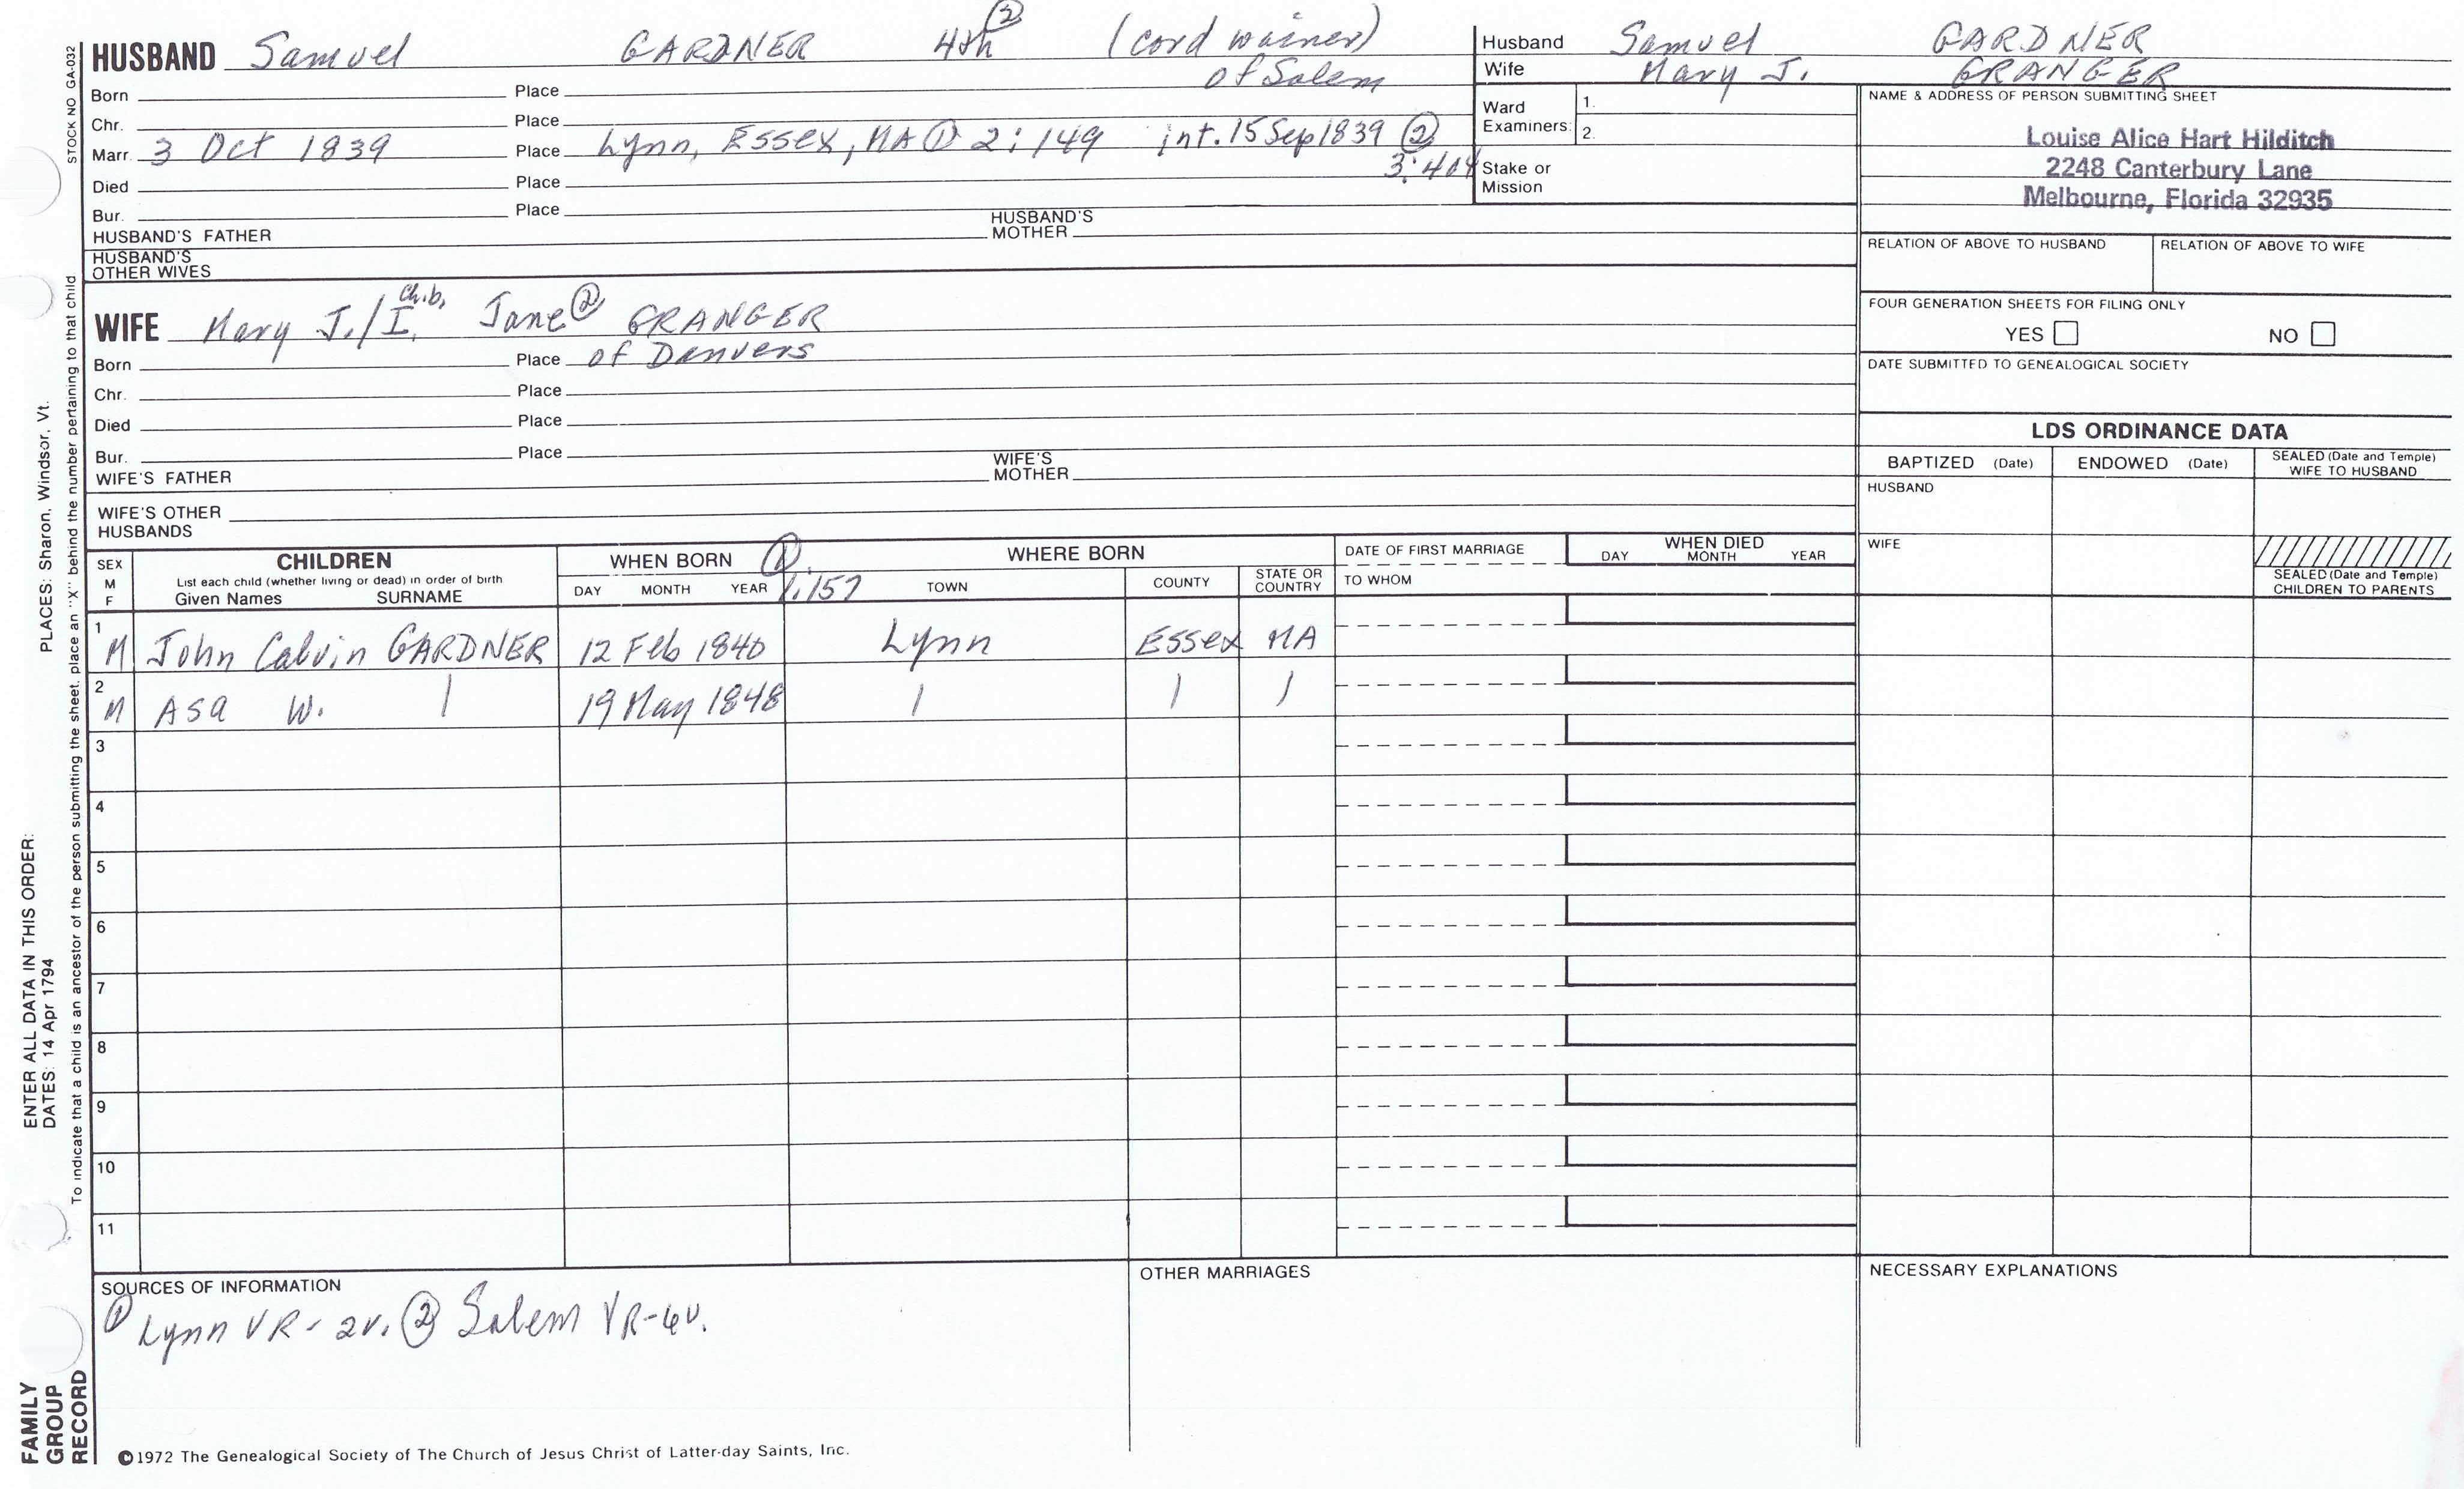 STOCK NO GA-032
PLACES: Sharon, Windsor, Vt.
ENTER ALL DATA IN THIS ORDER:
DATES: 14 Apr 1794
To indicate that a child is an ancestor of the person submitting the sheet, place an "X" behind the number pertaining to that child
FAMILY
GROUP
RECORD
HUSBAND Samuel GARDNER 4th ② (cord wainer)
of Salem
Born Place
Chr. Place
Marr. 3 Oct 1839 Place Lynn, Essex, MA ① 2:149 int. 15 Sep 1839 ②
3:404
Died Place
Bur. Place
HUSBAND'S FATHER HUSBAND'S MOTHER
HUSBAND'S OTHER WIVES
Husband Samuel GARDNER
Wife Mary J. GRANGER
Ward Examiners: 1.
2.
Stake or Mission
NAME & ADDRESS OF PERSON SUBMITTING SHEET
Louise Alice Hart Hilditch
2248 Canterbury Lane
Melbourne, Florida 32935
RELATION OF ABOVE TO HUSBAND RELATION OF ABOVE TO WIFE
FOUR GENERATION SHEETS FOR FILING ONLY
YES NO
DATE SUBMITTED TO GENEALOGICAL SOCIETY
WIFE Mary J./I. Jane ② GRANGER
Born Place of Danvers
Chr. Place
Died Place
Bur. Place
WIFE'S FATHER WIFE'S MOTHER
WIFE'S OTHER HUSBANDS
LDS ORDINANCE DATA
BAPTIZED (Date) ENDOWED (Date) SEALED (Date and Temple) WIFE TO HUSBAND
HUSBAND
WIFE
SEALED (Date and Temple) CHILDREN TO PARENTS
SEX M F
CHILDREN
List each child (whether living or dead) in order of birth
Given Names SURNAME
WHEN BORN ① 1:157
DAY MONTH YEAR
WHERE BORN
TOWN COUNTY STATE OR COUNTRY
DATE OF FIRST MARRIAGE
TO WHOM
WHEN DIED
DAY MONTH YEAR
1 M John Calvin GARDNER 12 Feb 1840 Lynn Essex MA
2 M Asa W. | 19 May 1848 | | |
3
4
5
6
7
8
9
10
11
SOURCES OF INFORMATION
① Lynn VR-2v. ② Salem VR-6v.
OTHER MARRIAGES
NECESSARY EXPLANATIONS
©1972 The Genealogical Society of The Church of Jesus Christ of Latter-day Saints, Inc.